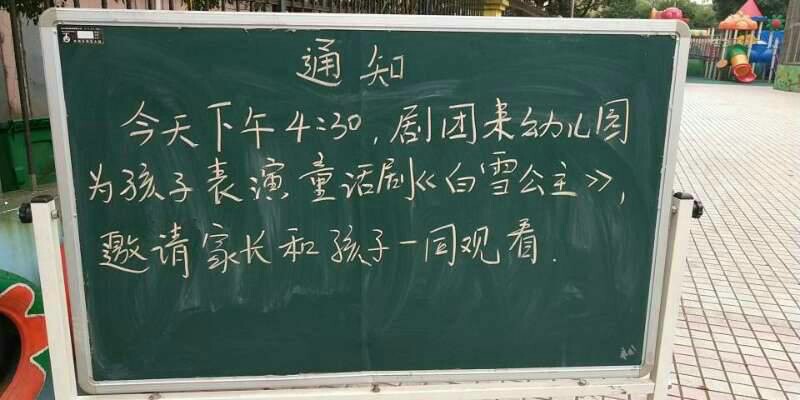 通知
今天下午4:30,剧团来幼儿园
为孩子表演童话剧《白雪公主》,
邀请家长和孩子一同观看.